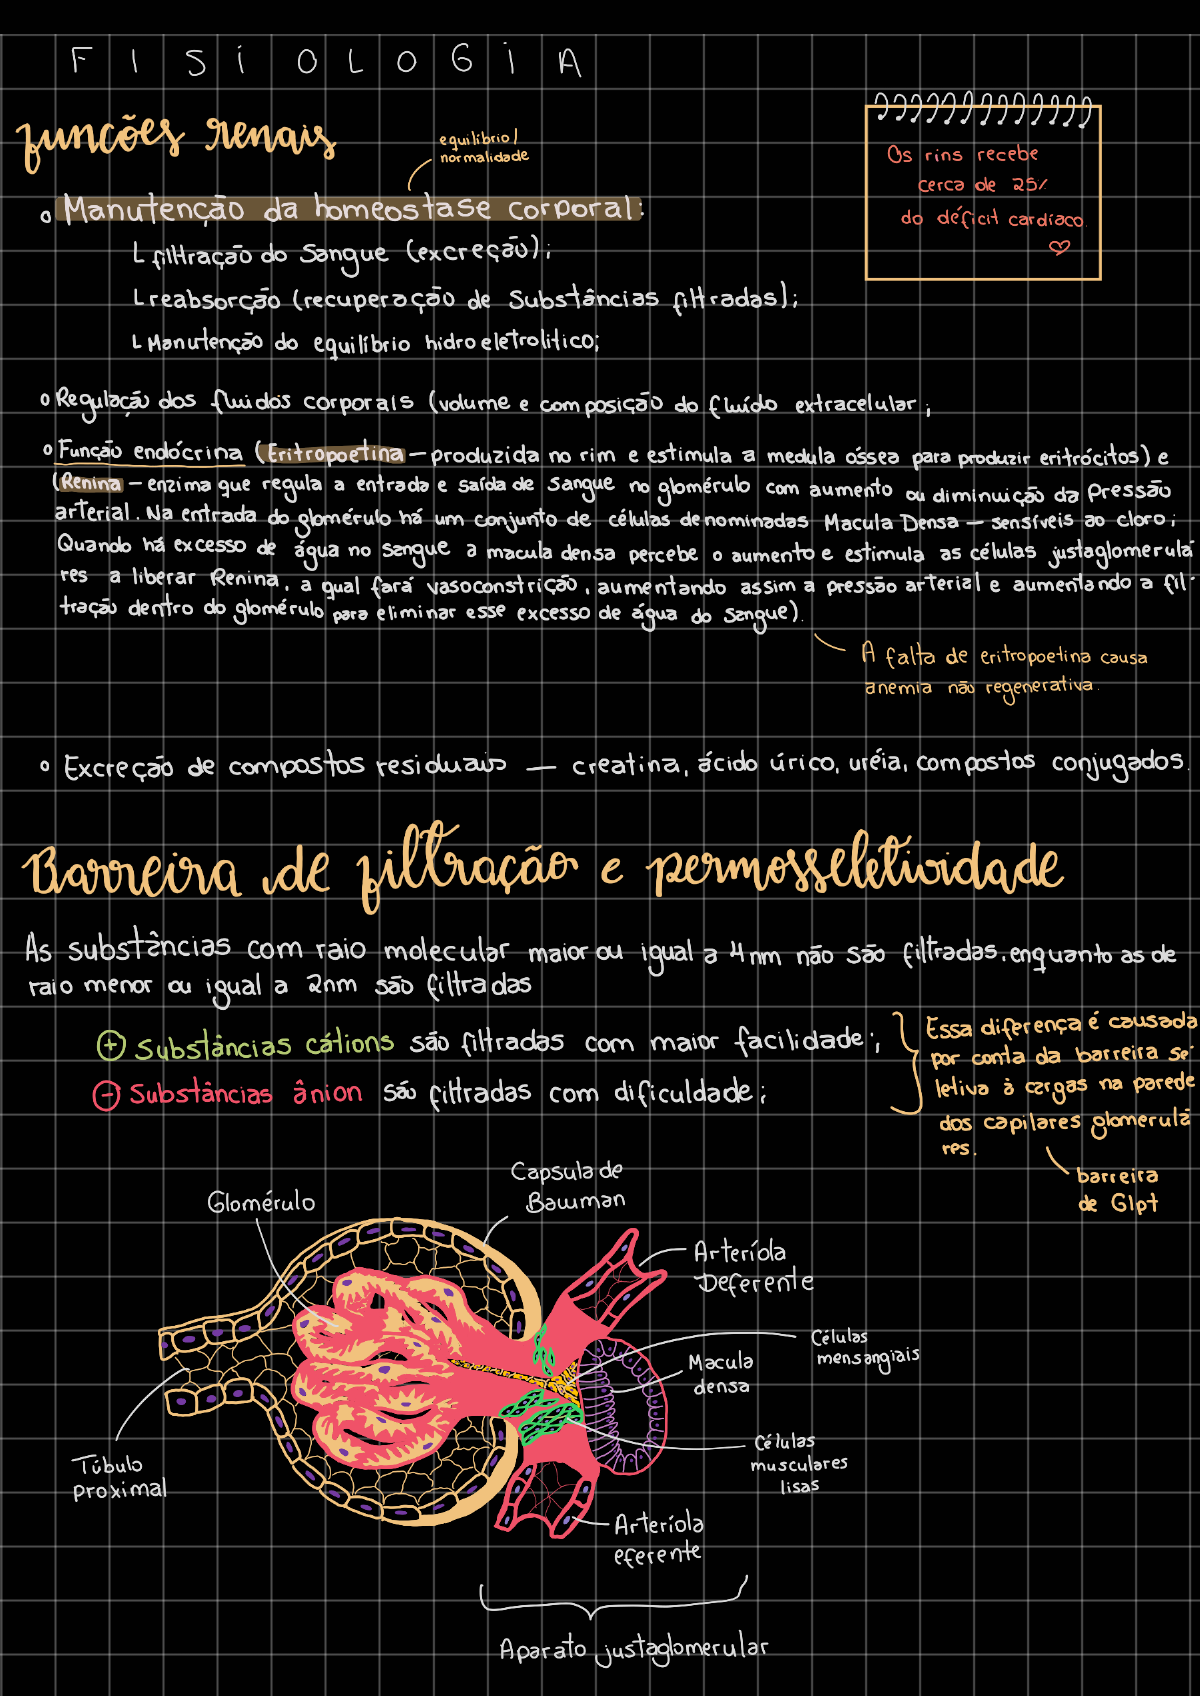 FISIOLOGIA
funcões renais
equilíbrio/
normalidade
Os rins recebe
cerca de 25%
do déficit cardíaco.
o Manutenção da homeostase corporal:
└ filtração do Sangue (excreção);
└ reabsorção (recuperação de Substâncias filtradas);
└ Manutenção do equilíbrio hidroeletrolitico;
o Regulação dos fluidos corporais (volume e composição do fluído extracelular;
o Função endócrina (Eritropoetina — produzida no rim e estimula a medula óssea para produzir eritrócitos) e
(Renina — enzima que regula a entrada e saída de Sangue no glomérulo com aumento ou diminuição da Pressão
arterial. Na entrada do glomérulo há um conjunto de células denominadas Macula Densa — sensíveis ao cloro;
Quando há excesso de água no sangue a macula densa percebe o aumento e estimula as células justaglomerula
res a liberar Renina, a qual fará vasoconstrição, aumentando assim a pressão arterial e aumentando a fil
tração dentro do glomérulo para eliminar esse excesso de água do Sangue).
A falta de eritropoetina causa
anemia não regenerativa.
o Excreção de compostos residuais — creatina, ácido úrico, uréia, compostos conjugados.
Barreira de filtração e permosseletividade
As substâncias com raio molecular maior ou igual a 4nm não são filtradas, enquanto as de
raio menor ou igual a 2nm são filtradas
+ Substâncias cátions são filtradas com maior facilidade;
- Substâncias ânion são filtradas com dificuldade;
Essa diferença é causada
por conta da barreira se
letiva à cargas na parede
dos capilares glomerula
res.
barreira
de Glpt
Capsula de
Bawman
Glomérulo
Arteríola
Deferente
Células
mensangiais
Macula
densa
Células
musculares
lisas
Túbulo
proximal
Arteríola
eferente
Aparato justaglomerular